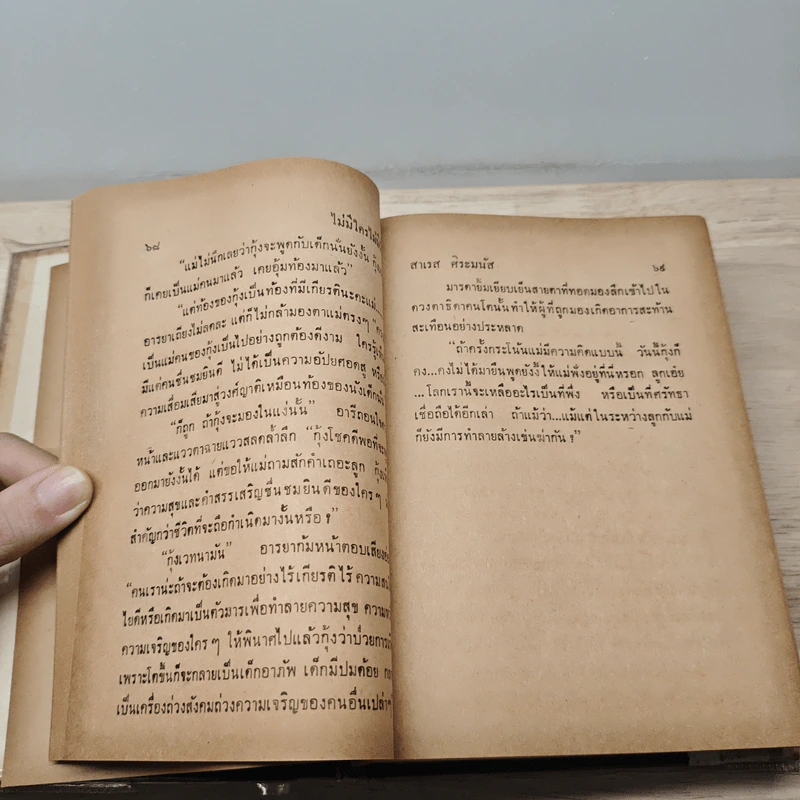 ๖๘
ไม่มีใครไม่มี
“แม่ไม่นึกเลยว่ากุ้งจะพูดกับเด็กนั่นยังงั้น กุ้ง
ก็เคยเป็นแม่คนมาแล้ว เคยอุ้มท้องมาแล้ว”
“แต่ท้องของกุ้งเป็นท้องที่มีเกียรตินะคะแม่
อารยาเถียงไม่ลดละ แต่ก็ไม่กล้ามองตาแม่ตรงๆ
เป็นแม่คนของกุ้งเป็นไปอย่างถูกต้องดีงาม ใครรู้
มีแต่คนชื่นชมยินดี ไม่ได้เป็นความอัปยศอดสู
ความเสื่อมเสียมาสู่วงศ์ญาติเหมือนท้องของนังเด็กนั่น
“ก็ถูก ถ้ากุ้งจะมองในแง่นั้น” อารีถอนใจ
หน้าและแววตาฉายแววสลดล้ำลึก “กุ้งโชคดีพอที่จะ
ออกมายังงั้นได้ แต่ขอให้แม่ถามสักคำเถอะลูก กุ้ง
ว่าความสุขและคำสรรเสริญชื่นชมยินดีของใครๆ
สำคัญกว่าชีวิตที่จะถือกำเนิดมางั้นหรือ?”
“กุ้งเวทนามัน” อารยาก้มหน้าตอบเสียง
“คนเราน่ะถ้าจะต้องเกิดมาอย่างไร้เกียรติไร้ความ
ไยดีหรือเกิดมาเป็นตัวมารเพื่อทำลายความสุข
ความเจริญของใครๆ ให้พินาศไปแล้วกุ้งว่าป่วยการ
เพราะโตขึ้นก็จะกลายเป็นเด็กอาภัพ เด็กมีปมด้อย
เป็นเครื่องถ่วงสังคมถ่วงความเจริญของคนอื่นเปล่าๆ
สาเรส ศิระมนัส
๖๙
มารดายิ้มเยียบเย็นสายตาที่ทอดมองลึกเข้าไปใน
ดวงตาธิดาคนโตนั้นทำให้ผู้ที่ถูกมองเกิดอาการสะท้าน
สะเทือนอย่างประหลาด
“ถ้าครั้งกระโน้นแม่มีความคิดแบบนี้ วันนี้กุ้งก็
คง...คงไม่ได้มายืนพูดยังงี้ให้แม่ฟังอยู่ที่นี่หรอก ลูกเอ๋ย
...โลกเรานี้จะเหลืออะไรเป็นที่พึ่ง หรือเป็นที่ศรัทธา
เชื่อถือได้อีกเล่า ถ้าแม้ว่า...แม้แต่ในระหว่างลูกกับแม่
ก็ยังมีการทำลายล้างเข่นฆ่ากัน?”